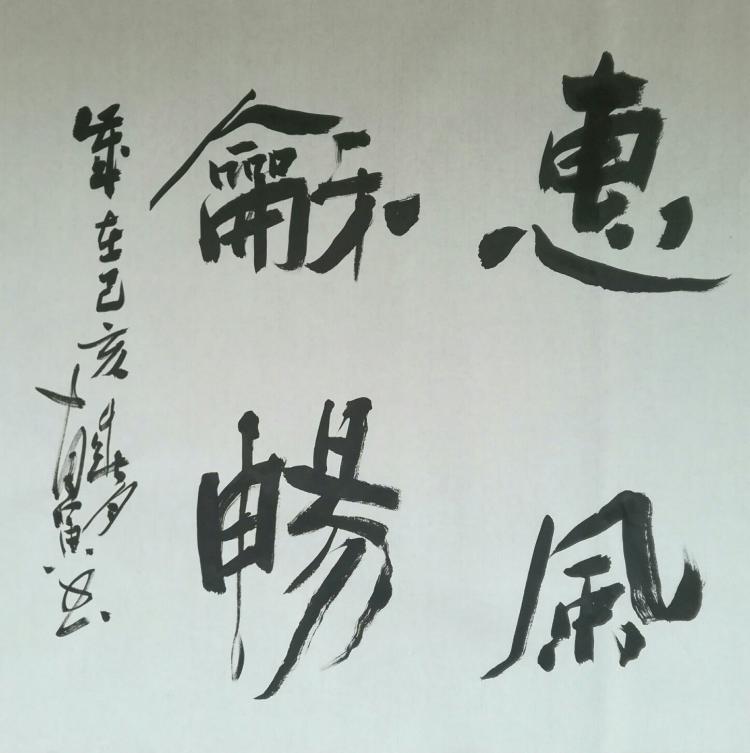 惠風
龢暢
歲在己亥
書